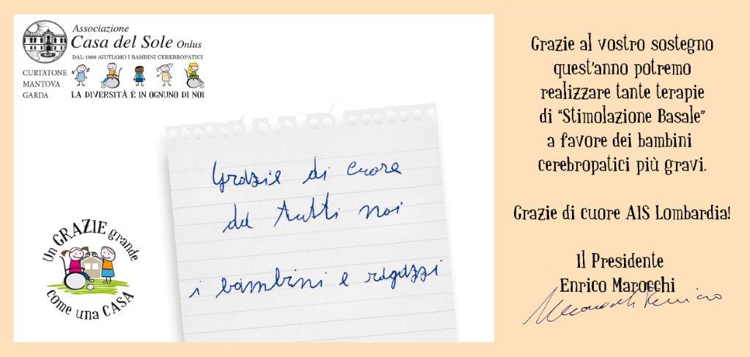 Associazione
Casa del Sole Onlus
DAL 1966 AIUTIAMO I BAMBINI CEREBROPATICI
CURTATONE
MANTOVA
GARDA
LA DIVERSITÀ È IN OGNUNO DI NOI
Grazie di cuore
da tutti noi
i bambini e ragazzi
Un GRAZIE grande
come una CASA
Grazie al vostro sostegno
quest'anno potremo
realizzare tante terapie
di "Stimolazione Basale"
a favore dei bambini
cerebropatici più gravi.
Grazie di cuore AIS Lombardia!
Il Presidente
Enrico Marocchi